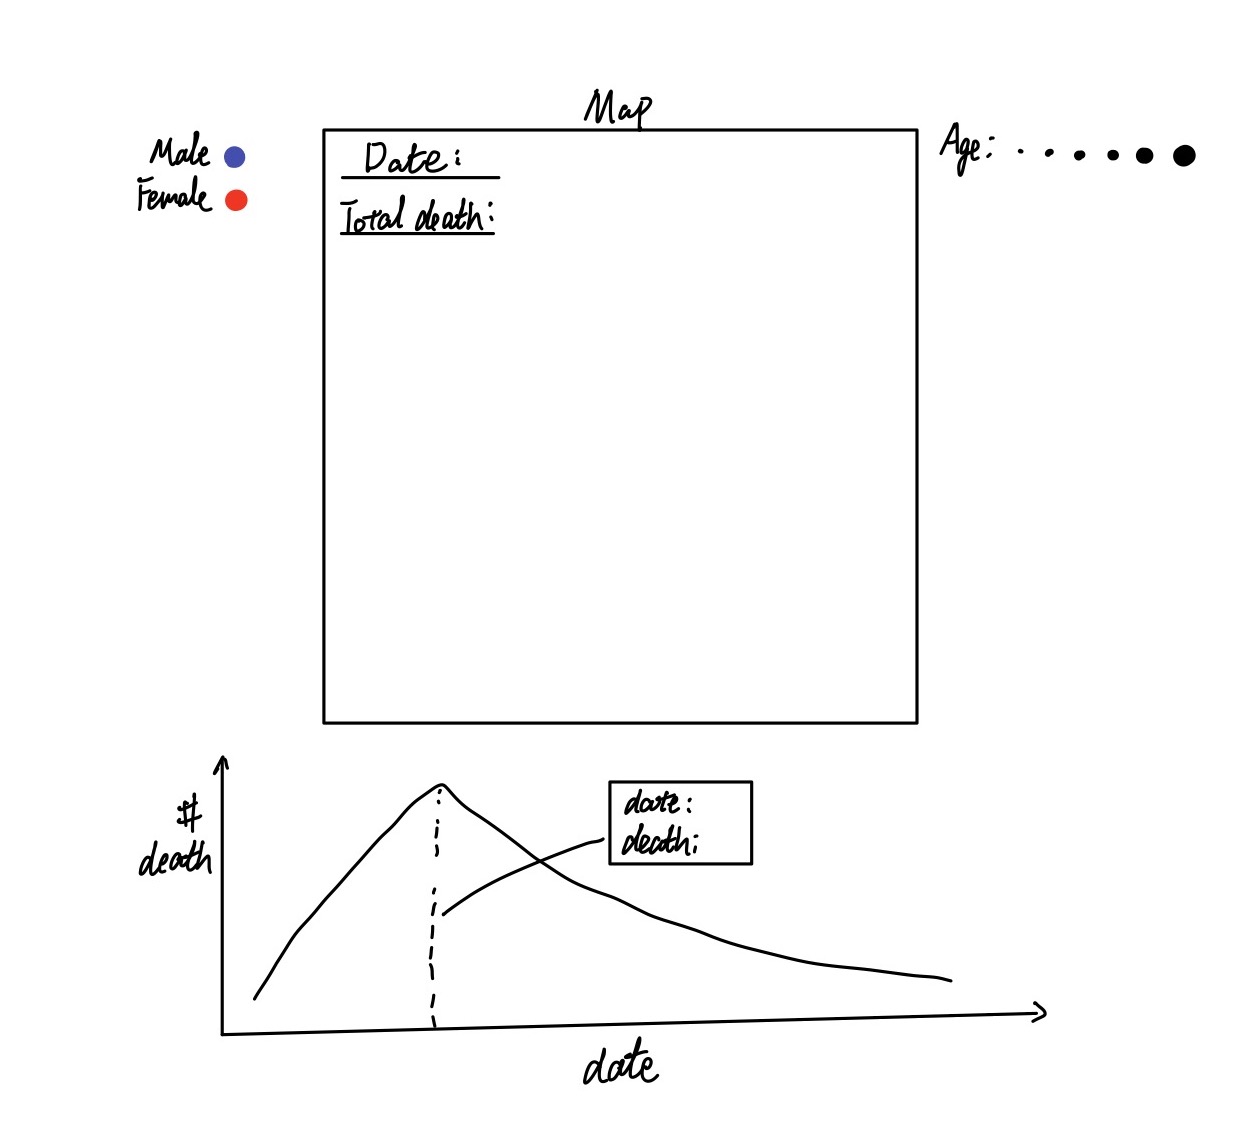 Map
Male
Female
Age:
Date:
Total death:
#
death
date:
death:
date